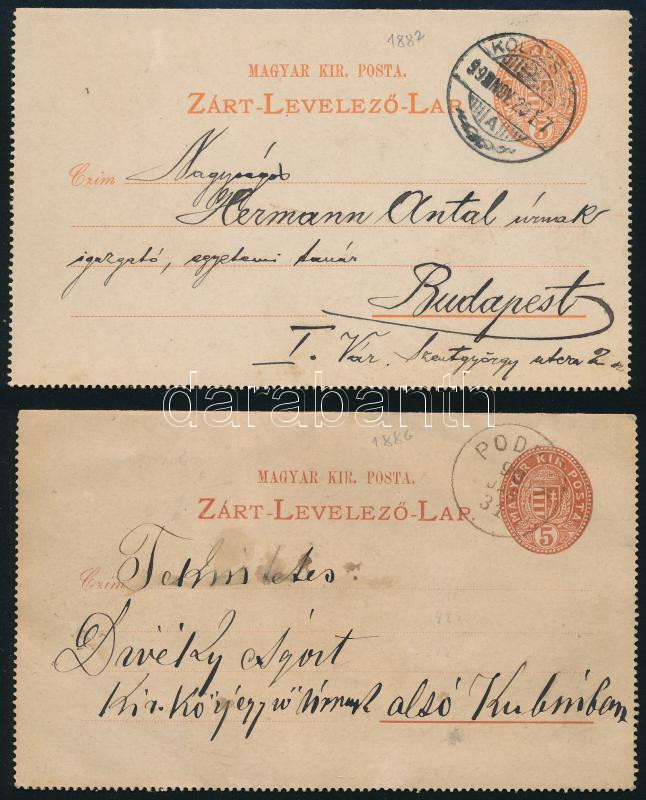 1882
MAGYAR KIR. POSTA.
ZÁRT-LEVELEZŐ-LAP
5
Czim Nagyságos
Hermann Antal úrnak
igazgató, egyetemi tanár
Budapest
I. Vár. Szentgyörgy utcza 2
darabanth
1886
POD
MAGYAR KIR. POSTA.
MAGYAR KIR. POSTA
ZÁRT-LEVELEZŐ-LAP.
5
Czim Tekintetes
Divéky
Kir. Közjegyző úrnak alsó Kubinban